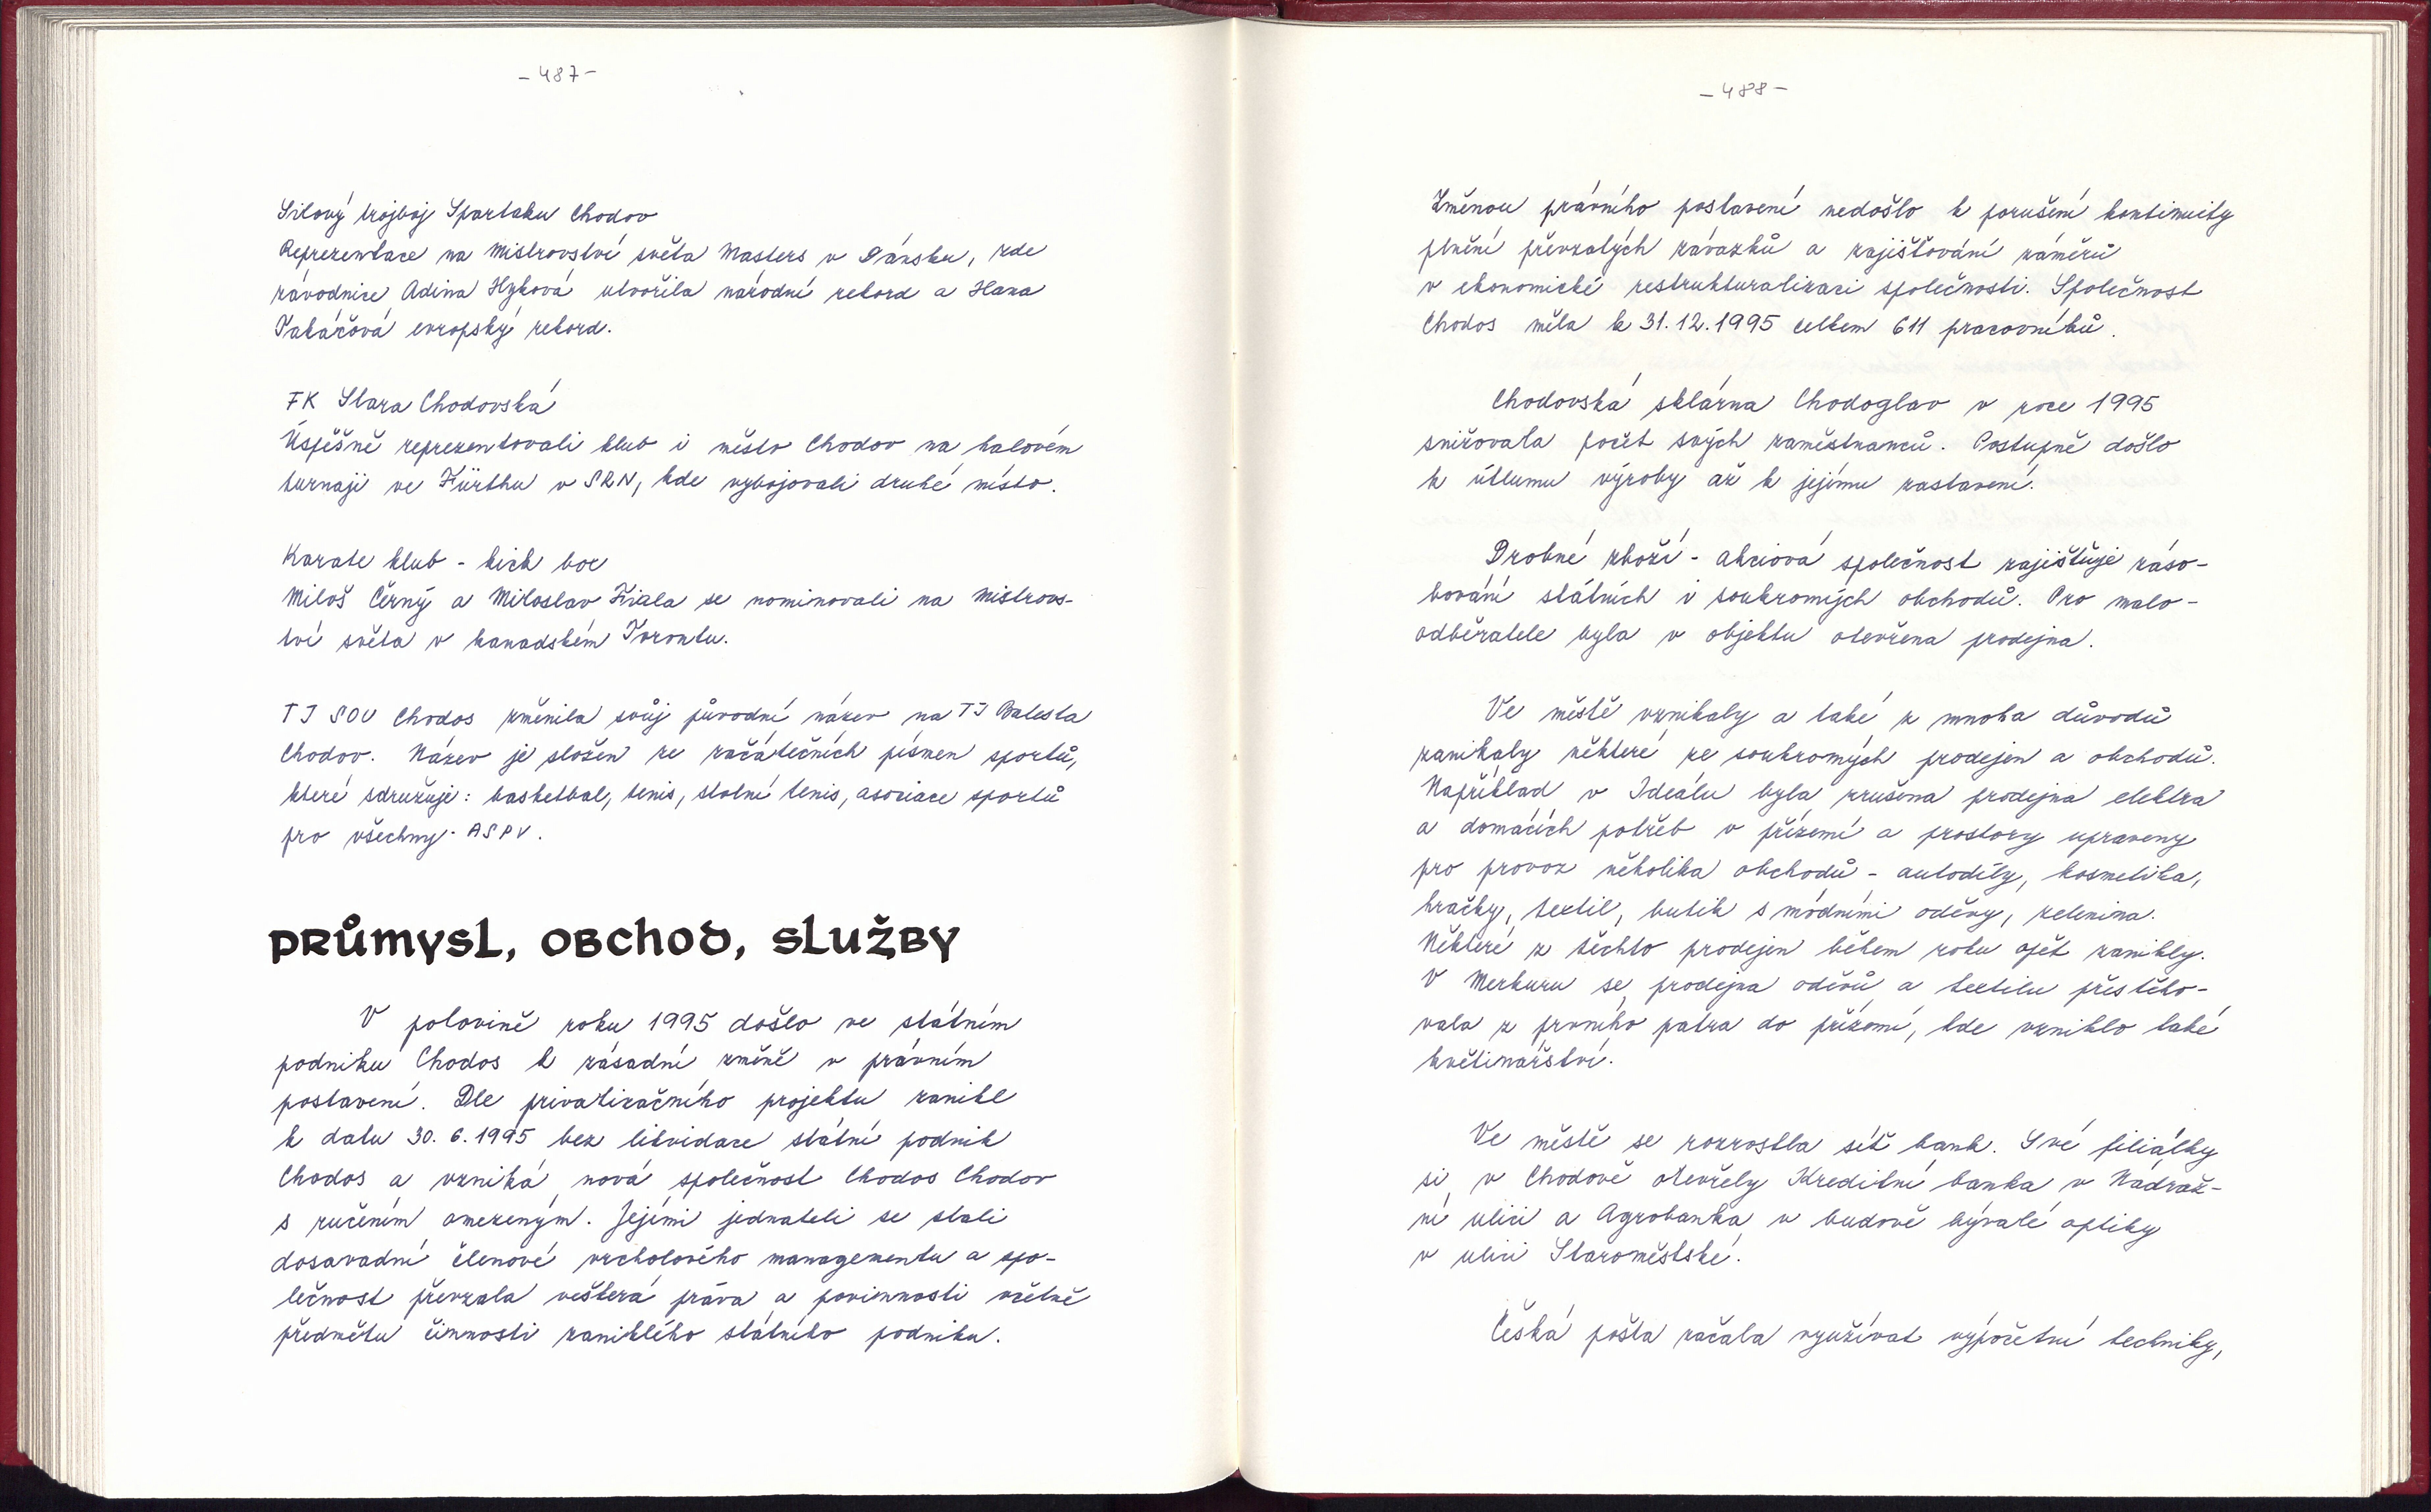 - 487 -
Silový trojboj Spartaku Chodov
Reprezentace na Mistrovství světa Masters v Dánsku, kde
závodnice Adina Hyková utvořila národní rekord a Hana
Takáčová evropský rekord.
FK Stará Chodovská
Úspěšně reprezentovali klub i město Chodov na halovém
turnaji ve Fürthu v SRN, kde vybojovali druhé místo.
Karate klub - kick box
Miloš Černý a Miloslav Fiala se nominovali na Mistrovs-
tví světa v kanadském Torontu.
TJ SOU Chodos změnila svůj původní název na TJ Batesta
Chodov. Název je složen ze začátečních písmen sportů,
které sdružuje: basketbal, tenis, stolní tenis, asociace sportů
pro všechny - ASPV.
PRŮMYSL, OBCHOD, SLUŽBY
V polovině roku 1995 došlo ve státním
podniku Chodos k zásadní změně v právním
postavení. Dle privatizačního projektu zanikl
k datu 30. 6. 1995 bez likvidace státní podnik
Chodos a vzniká nová společnost Chodos Chodov
s ručením omezeným. Jejími jednateli se stali
dosavadní členové vrcholového managementu a spo-
lečnost převzala veškerá práva a povinnosti včetně
předmětu činnosti zaniklého státního podniku.
- 488 -
Změnou právního postavení nedošlo k porušení kontinuity
plnění převzatých závazků a zajišťování záměrů
v ekonomické restrukturalizaci společnosti. Společnost
Chodos měla k 31.12.1995 celkem 611 pracovníků.
Chodovská sklárna Chodoglav v roce 1995
snižovala počet svých zaměstnanců. Postupně došlo
k útlumu výroby až k jejímu zastavení.
Drobné zboží - akciová společnost zajišťuje záso-
bování státních i soukromých obchodů. Pro malo-
odběratele byla v objektu otevřena prodejna.
Ve městě vznikaly a také z mnoha důvodů
zanikaly některé ze soukromých prodejen a obchodů.
Například v Ideálu byla zrušena prodejna elektra
a domácích potřeb v přízemí a prostory upraveny
pro provoz několika obchodů - autodíly, kosmetika,
hračky, textil, butik s módními oděvy, zelenina.
Některé z těchto prodejen během roku opět zanikly.
V Merkuru se prodejna oděvů a textilu přistěho-
vala z prvního patra do přízemí, kde vzniklo také
květinářství.
Ve městě se rozrostla síť bank. Své filiálky
si v Chodově otevřely Kreditní banka v Nádraž-
ní ulici a Agrobanka v budově bývalé optiky
v ulici Staroměstské.
Česká pošta začala využívat výpočetní techniky,